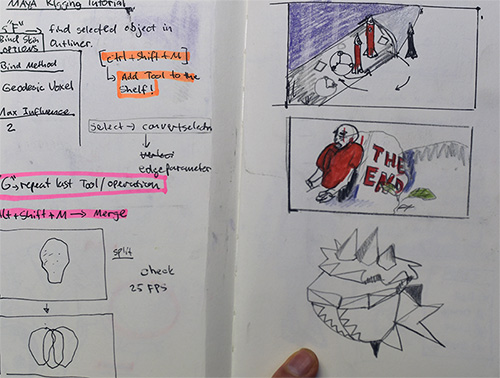 MAYA Rigging Tutorial
"F" → find selected object in
Outliner.
Bind Skin
OPTIONS
Bind Method
Geodesic Voxel
Max Influence
2
[ctrl + Shift + M]
↳ Add Tool to the
Shelf!
Select → convertselectn
edgeparameter
"G" → repeat last Tool/operation
Alt + Shift + M → Merge
split
check
25 FPS
THE
END